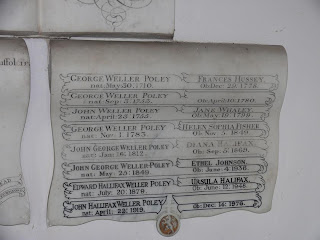 GEORGE WELLER POLEY FRANCES HUSSEY
nat: May 20. 1710. Ob: Dec: 1778.
GEORGE WELLER POLEY
nat: Sep: Ob: April 10. 1780.
JOHN WELLER POLEY JANE WHALEY
nat: April Ob: May 1799.
GEORGE WELLER POLEY HELEN SOPHIA FISHER
nat: Nov: 1. 1783. Ob: Nov:
JOHN GEORGE WELLER POLEY DIANA HALIFAX
nat: Jan: 16. 1812. Ob: Sep: 5.
JOHN WELLER-POLEY ETHEL JOHNSON
nat: May: Ob: June: 4. 1936.
EDWARD HALIFAX WELLER POLEY URSULA HALIFAX
nat: July. 20. 1879. Ob: June. 12. 1948.
JOHN HALIFAX WELLER POLEY
nat: April: 22: 1919. ob: Dec: 14: 1979.